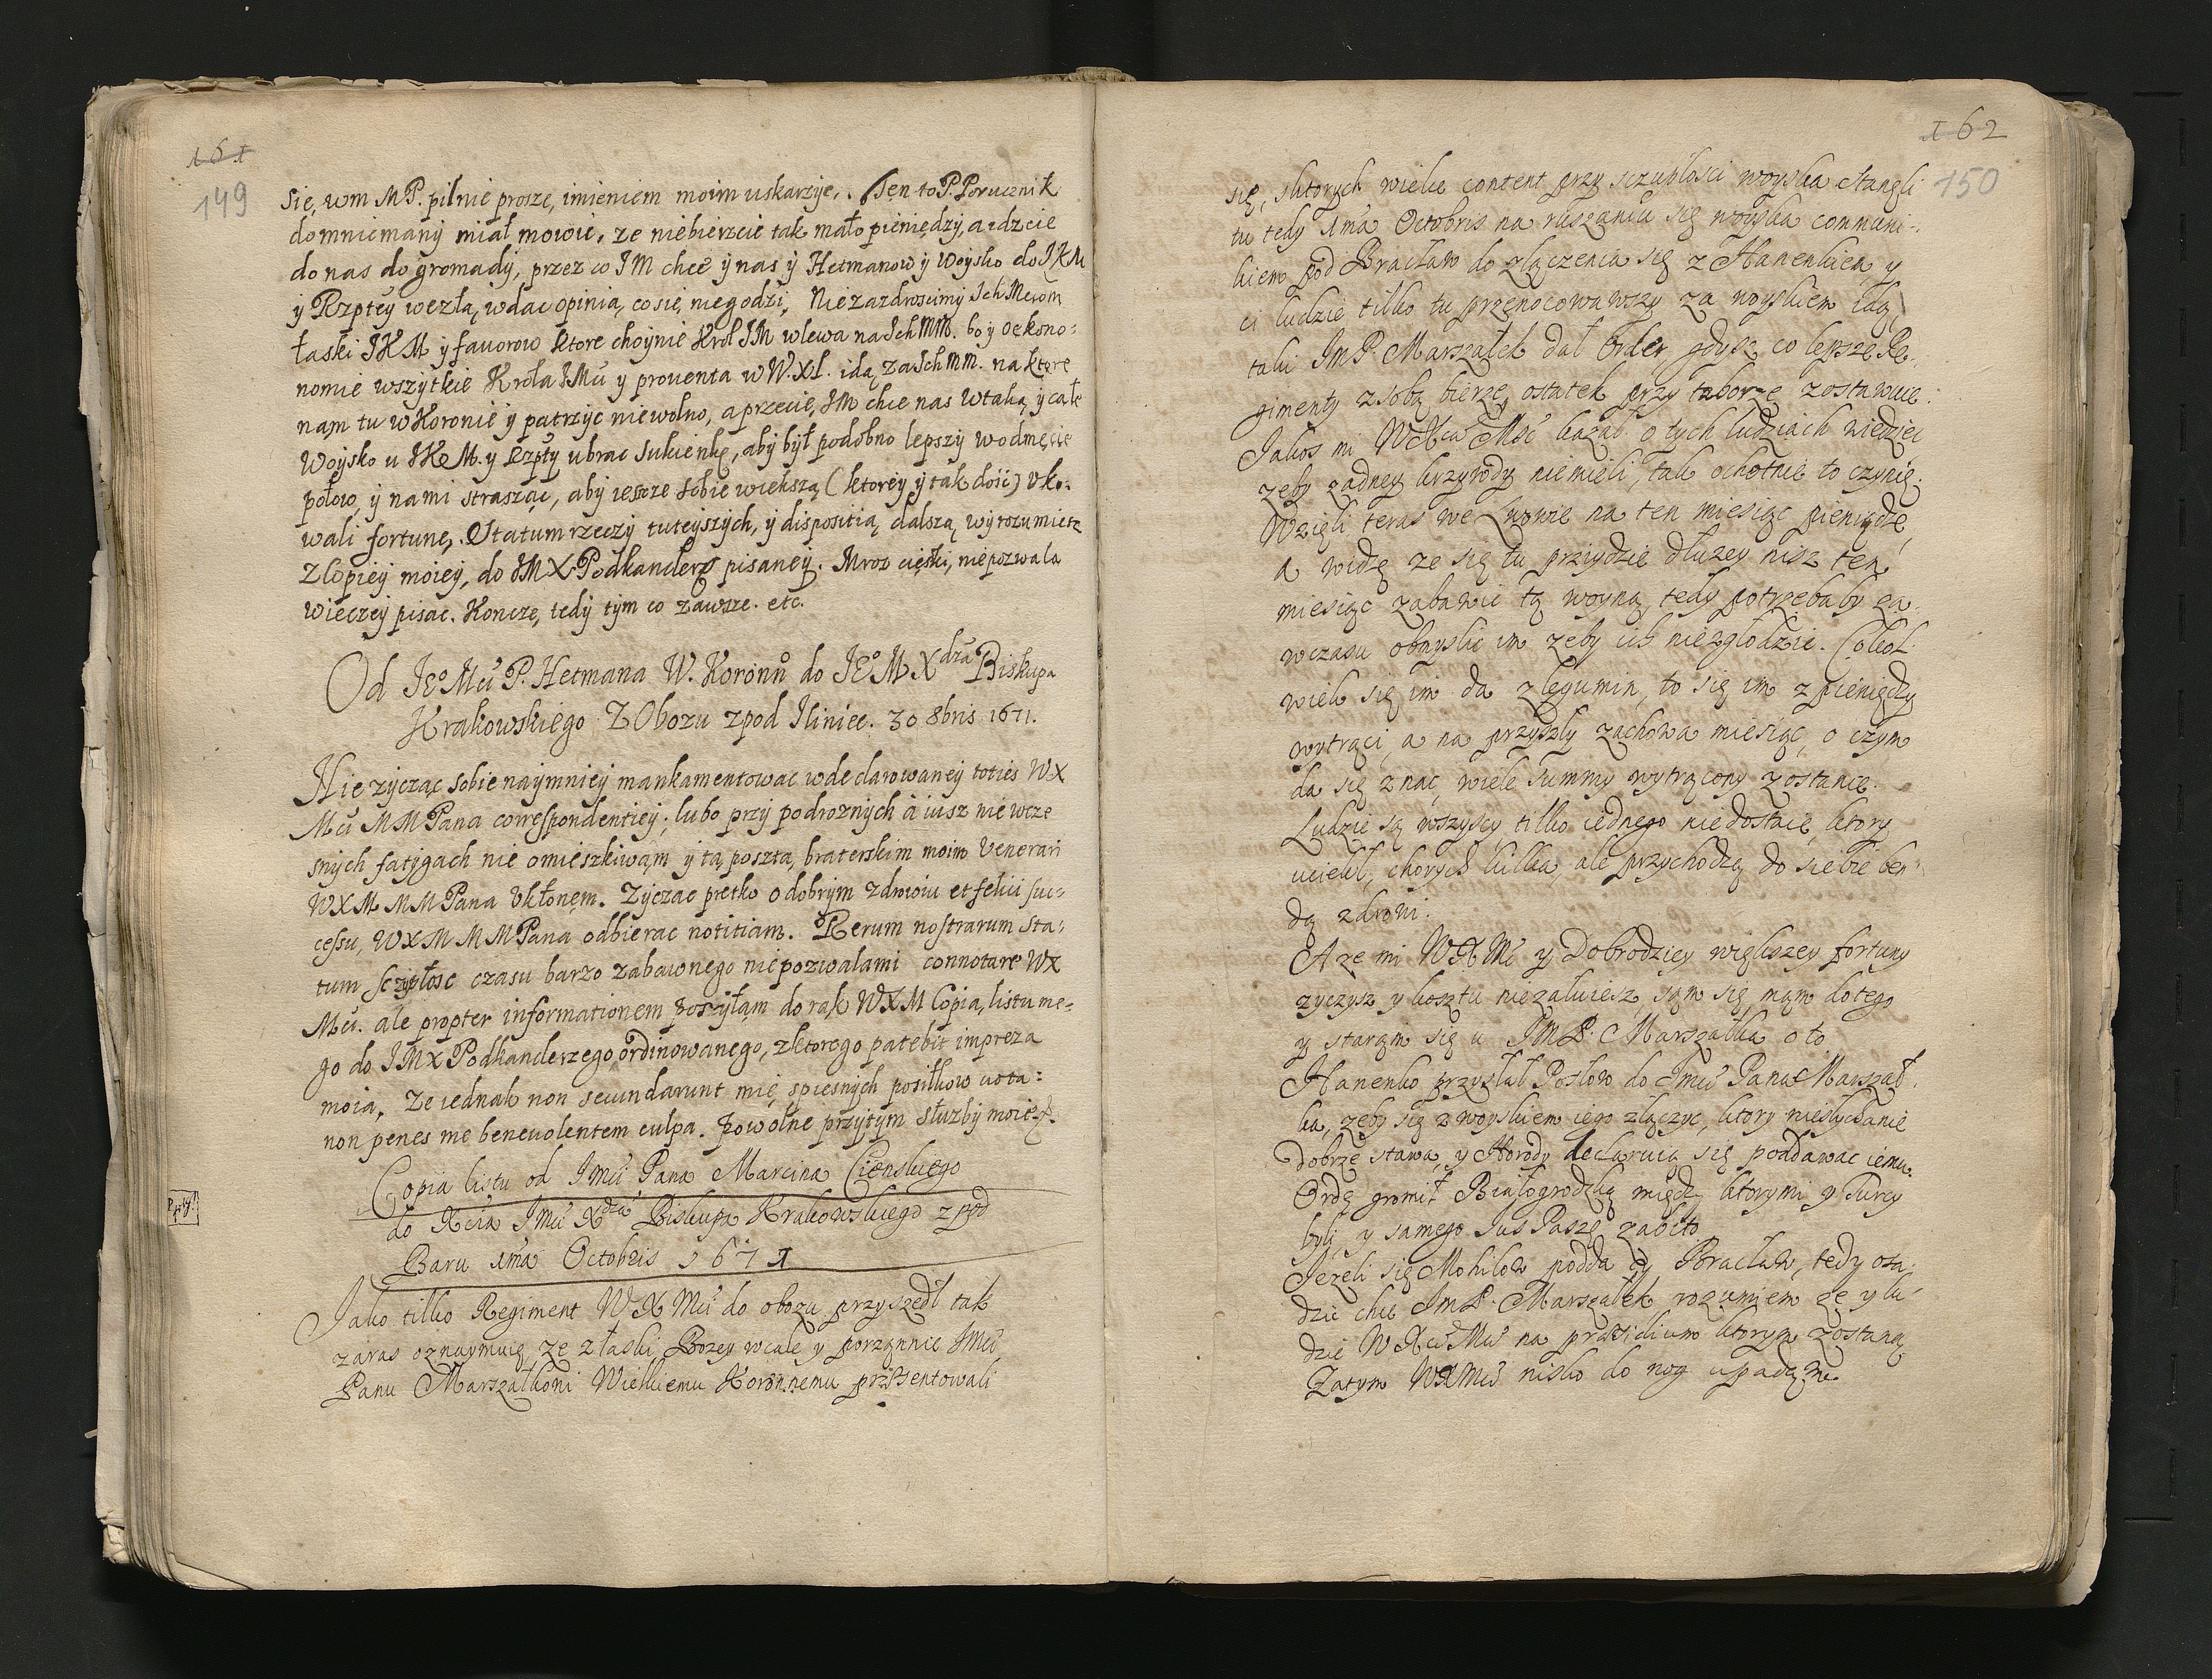 161
149
Się, wm MP. pilnie proszę, imieniem moim uskarzyę. Ten to P. Porucznik
domniemany miał mowic, ze niebierzcie tak mało pieniędzy, a idzcie
do nas do gromady, przez co IM chce y nas y Hetmanow y Woysko do IKM
y Rzptey wezłą, wdac opinią, co się niegodzi, Niezazdroscimy Ich Mciom
łaski IKM y favorow ktore choynie Krol IM wlewa na Ich MM. bo y oekono:
nomie wszytkie Krola IMci y proventa w W.Xł. idą za Ich MM. na ktore
nam tu w Koronie y patrzyc niewolno, a przecie, IM chce nas w taką y całe
Woysko u IKM. y Rzpty ubrac sukienkę, aby był podobno lepszy wodmęcie
połow, y nami strasząc, aby ieszcze sobie większą (ktorey y tak dość) uko:
wali fortunę. Statum rzeczy tuteyszych, y dispositią dalszą wyrozumiesz
Zkopiey moiey, do IM X. Podkanclerz pisaney. Mroz cięśki, niepozwala
wieczey pisac. Koncze, tedy tym co zawsze. etc.
Od IEo Mci P. Hetmana W. Koronno do IEo M Xdza Biskupa
Krakowskiego Z Obozu zpod Iliniec. 30 8bris 1671.
Nie zycząc sobie naymniey mankamentowac wdeclarowaney toties WX
Mci MMPana correspondentiey; lubo przy podroznych a iusz niewcze
snych fatygach nie omieszkiwąm y tą posztą, braterskim moim Venerari
WXM MMPana Ukłonem. Zyczac prętko o dobrym zdrowiu et felici suc:
cessu, WXM MMPana odbierac notitiam. Rerum nostrarum sta:
tum sczypłosc czasu barzo zabawnego niepozwala mi connotare WX
Mci. ale propter informationem poszyłąm do rąk WXM Copią, listu me:
go do IMX Podkanclerzego ordinowanego, zktorego patebit impreza
moia, Ze iednak non secundarunt mię spiesnych posiłkow vota:
non penes me benevolentem culpa. Powolne przytym słuzby moie &.
Copia listu od Imci Pana Marcina Cienskiego
do Xcia Imci Xdza Biskupa Krakowskiego z pod
Baru 1ma Octobris 1671
Jako tilko Regiment WX Mci do obozu przyszedł tak
zaras oznaymuię ze złaski Bozey wcale y porządnie Imci
Panu Marszałkowi Wielkiemu Koronnemu prezentowali
162
150
się, sktorych wielce content przy sczupłosci woyska stangli
tu tedy 1ma Octobris na ruszaniu się woyska communi:
kiem pod Bracław do złączenia się z Hanenkiem y
ci ludzie tilko tu przenocowawszy za woyskiem idą,
taki Im P. Marszałek dał Order gdysz co lepsze Re:
gimenty z sobą bierze, ostatek przy taborze zostawuie.
Jakos mi WXca Msc kazał o tych ludziach wiedziec
zeby zadney krzywdy niemieli, tak ochotnie to czynię.
Wzięli teras we Lwowie na ten miesiąc pieniądze,
a widzę ze się tu przyydzie dłuzey nisz ten
miesiąc zabawic tą woyną, tedy potrzebaby za
wczasu obmyslic im zeby ich niezgłodzic. Cokol
wiek się im da z legumin, to się im z pieniędzy
wytrąci, a na przyszły zachowa miesiąc, o czym
da się znac, wiele summy wytrącony zostanie.
Ludzie są wszyscy tilko iednego niedostaie, ktory
uciekł, chorych kilka, ale przychodzą do siebie bęn
dą zdrowi.
A ze mi WXMc y Dobrodziey większey fortuny
zyczysz y kosztu niezałuiesz, sąm się mąm do tego
y starąm się u Im P. Marszałka o to
Hanenko przysłał Posłow do Imci Pana Marszał
ka, zeby się z woyskiem iego złączyc, ktory niesłychanie
dobrze stawa, y Horody declaruią się poddawac iemu.
Ordę gromił Białogrodzką między ktorymi y Turcy
byli, y samego Jus Paszę zabito.
Jezeli się Mohilow podda y Bracław, tedy osa
dzic chce Im P. Marszałek rozumiem ze y lu
dzie WXcia Mci na præsidium ktorym zostaną
Zatym WXMci nisko do nog upadąm